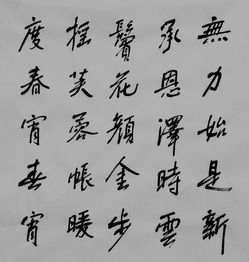 無力始是新
承恩澤時雲
鬢花顏金步
搖芙蓉帳暖
度春宵春宵